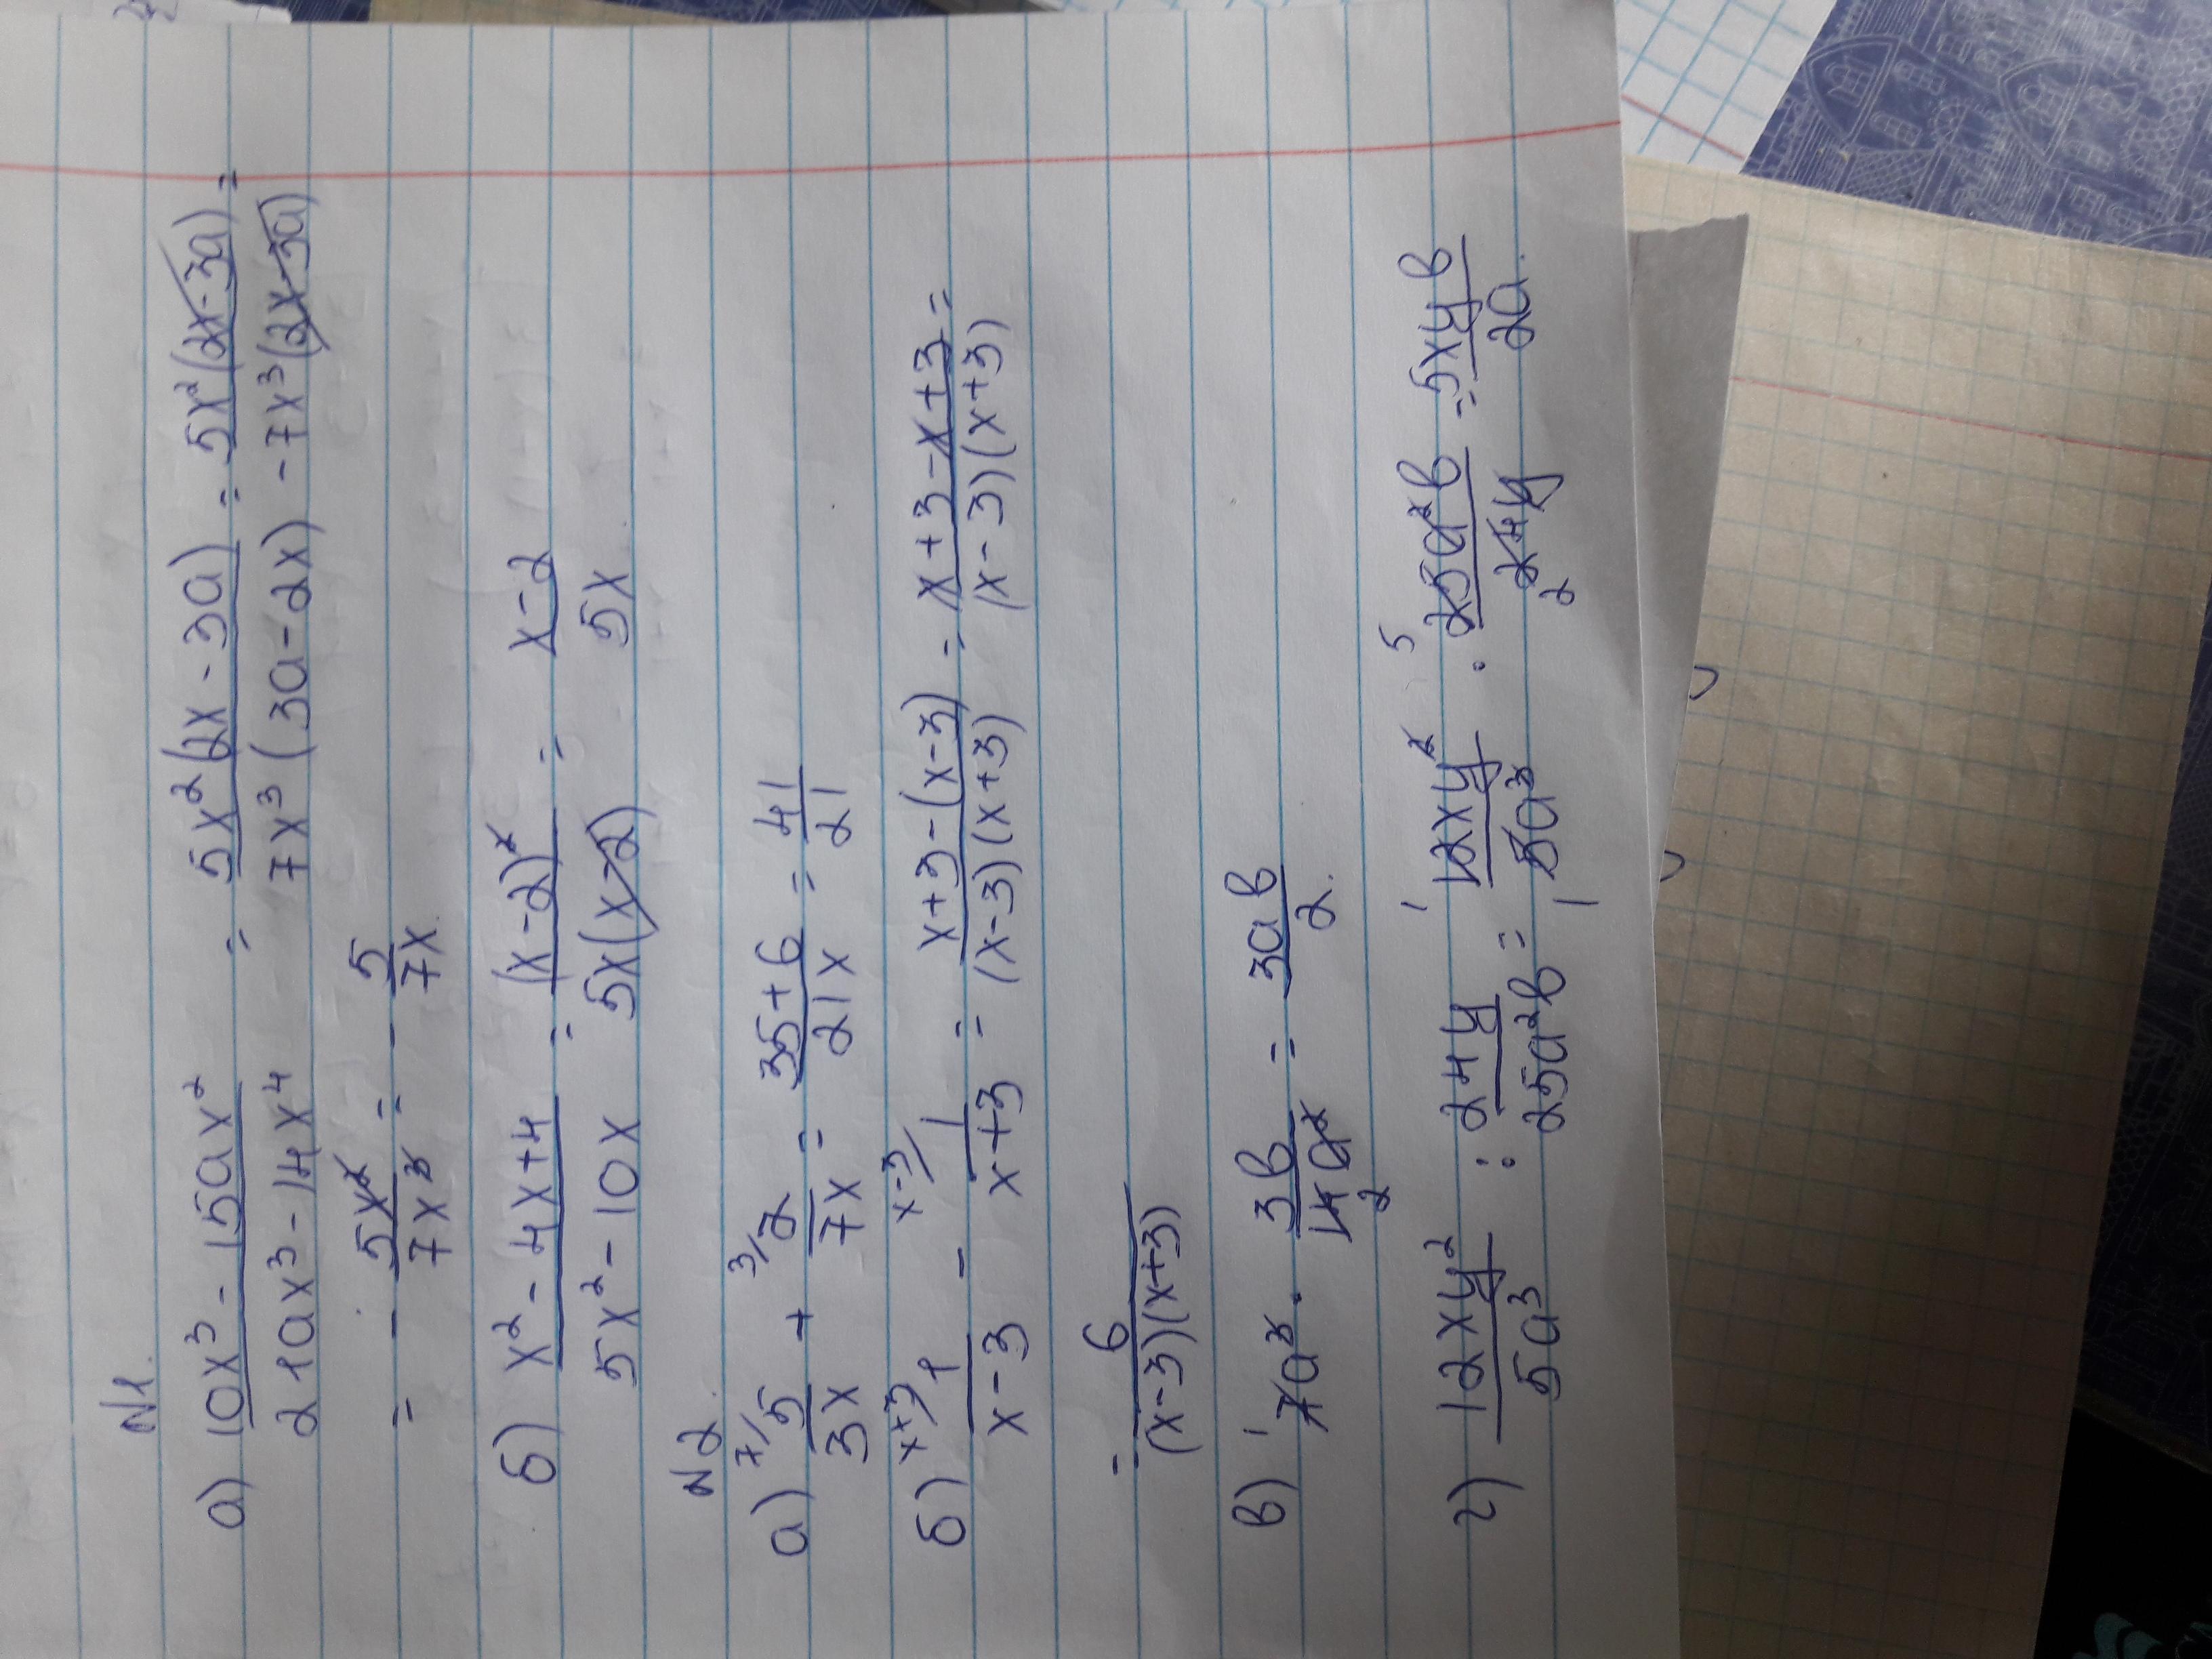 N1.
а) (10x³ - 15ax²)/(21ax³ - 14x⁴) = 5x²(2x - 3a)/7x³(3a - 2x) = 5x²(2x - 3a)/-7x³(2x - 3a) =
= - 5x²/7x³ = - 5/7x
б) (x² - 4x + 4)/(5x² - 10x) = (x - 2)²/5x(x - 2) = (x - 2)/5x
N2.
а) ⁷/5/3x + ³/2/7x = (35 + 6)/21x = 41/21
б) ˣ⁺³/1/(x - 3) - ˣ⁻³/1/(x + 3) = (x + 3 - (x - 3))/(x - 3)(x + 3) = (x + 3 - x + 3)/(x - 3)(x + 3) =
= 6/(x - 3)(x + 3)
в) ¹7a³ · 3в/14a² 2 = 3aв/2.
г) 12xy²/5a³ : 24y/25a²в = 1 12xy²/1 5a³ · 5 25a²в/2 24y = 5xyв/2a.